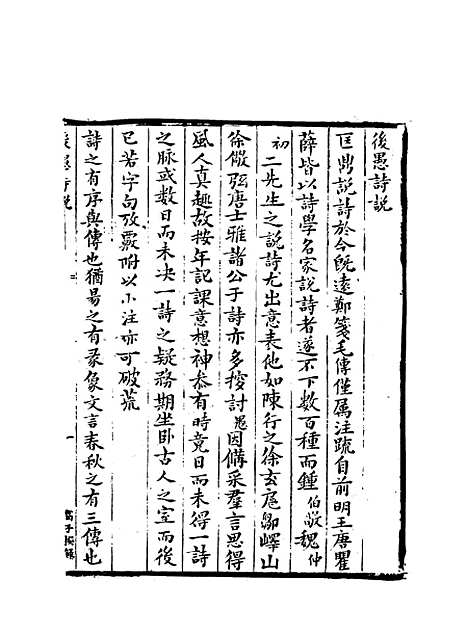 後愚詩說
匡鼎說詩於今旣遠鄭箋毛傳僅屬注疏自前明王唐瞿
薛皆以詩學名家說詩者遂不下數百種而鍾伯敬魏仲
初二先生之說詩尤出意表他如陳行之徐玄扈鄒嶧山
徐儆弦唐士雅諸公子詩亦多搜討愚因備采羣言思得
風人真趣故按年記課意想神恭有時竟日而未得一詩
之脉或數日而未決一詩之疑務期坐卧古人之室而後
已若字句攷覈附以小注亦可破荒
詩之有序與傳也猶易之有彖象文言春秋之有三傳也